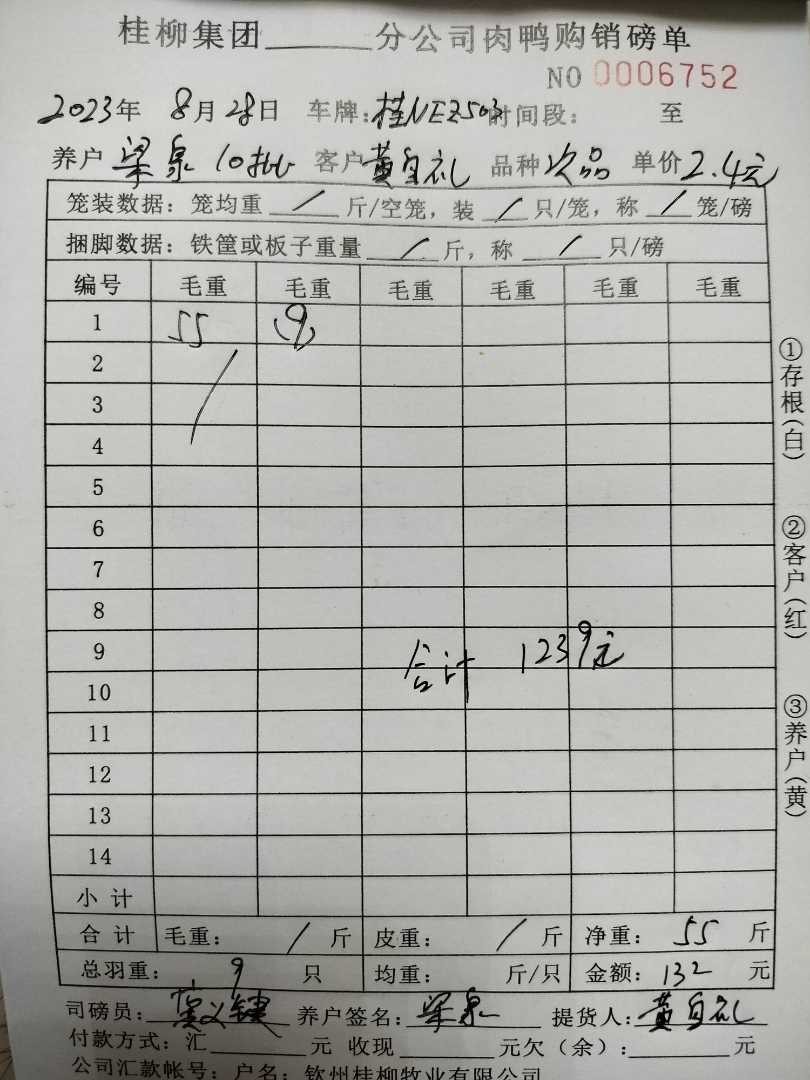 桂柳集团______分公司肉鸭购销磅单
NO 0006752
2023年 8月28日 车牌：桂NEZ503 时间段： 至
养户 梁泉 10批 客户 黄自礼 品种 次品 单价 2.4元
笼装数据：笼均重 / 斤/空笼，装 / 只/笼，称 / 笼/磅
捆脚数据：铁筐或板子重量 / 斤，称 / 只/磅
编号 毛重 毛重 毛重 毛重 毛重 毛重
1 55 (9)
2 /
3
4
5
6
7
8
9 合计 1239元
10
11
12
13
14
小计
合计 毛重： / 斤 皮重： / 斤 净重： 55 斤
总羽重： 9 只 均重： 斤/只 金额： 132 元
司磅员： 养户签名：梁泉 提货人：黄自礼
付款方式：汇______元 收现______元欠（余）：______元
公司汇款帐号：户名：钦州桂柳牧业有限公司
①存根（白）
②客户（红）
③养户（黄）